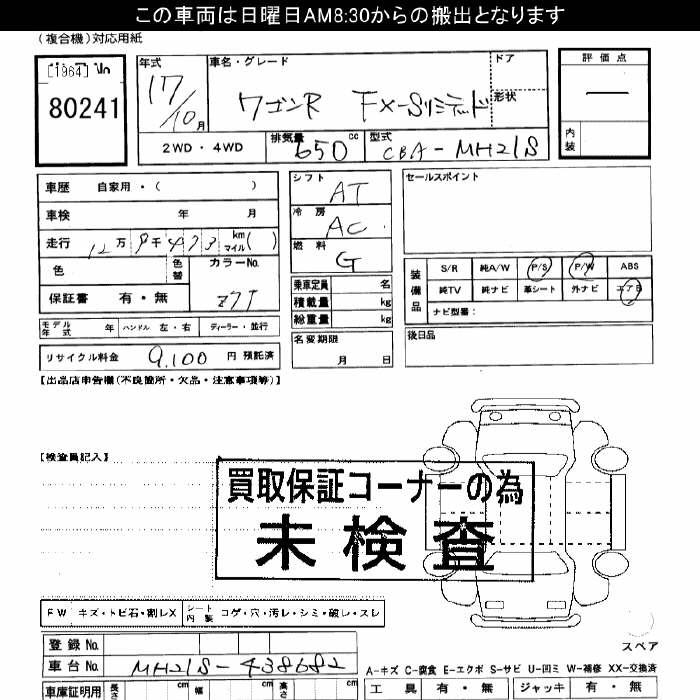 この車両は日曜日AM8:30からの搬出となります
(複合機)対応用紙
[1964]
80241
年式
17/10月
車名・グレード
ワゴンR FX-Sリミテッド
ドア
形状
2WD・4WD
排気量 650 cc
型式 CBA-MH21S
評価点
内装
車歴 自家用・( )
車検 年 月
走行 12万9千473 km マイル( )
色 色替 カラーNo.
保証書 有・無 Z7T
モデル年式 年 ハンドル 左・右 ディーラー・並行
リサイクル料金 9,100 円 預託済
シフト AT
冷房 AC
燃料 G
乗車定員 名
積載量 kg
総重量 kg
名変期限 月 日
セールスポイント
装備品
S/R 純A/W P/S P/W ABS
純TV 純ナビ 革シート 外ナビ エアB
ナビ型番:
後日品
【出品店申告欄(不良箇所・欠品・注意事項等)】
【検査員記入】
買取保証コーナーの為
未検査
FW キズ・トビ石・割レX シート内装 コゲ・穴・汚レ・シミ・破レ・スレ
スペア
登録No.
車台No. MH21S-438682
A-キズ C-腐食 E-エクボ S-サビ U-凹ミ W-補修 XX-交換済
車庫証明用 長さ cm 幅 cm 高さ cm
工具 有・無 ジャッキ 有・無